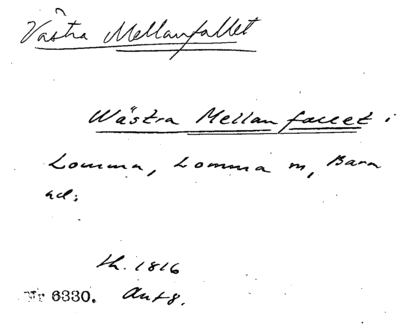 Västra Mellanfallet
Wästra Mellanfallet i
Lomma, Lomma sn, Bara
hd.
th. 1816
Nr 6330. Akt 8.